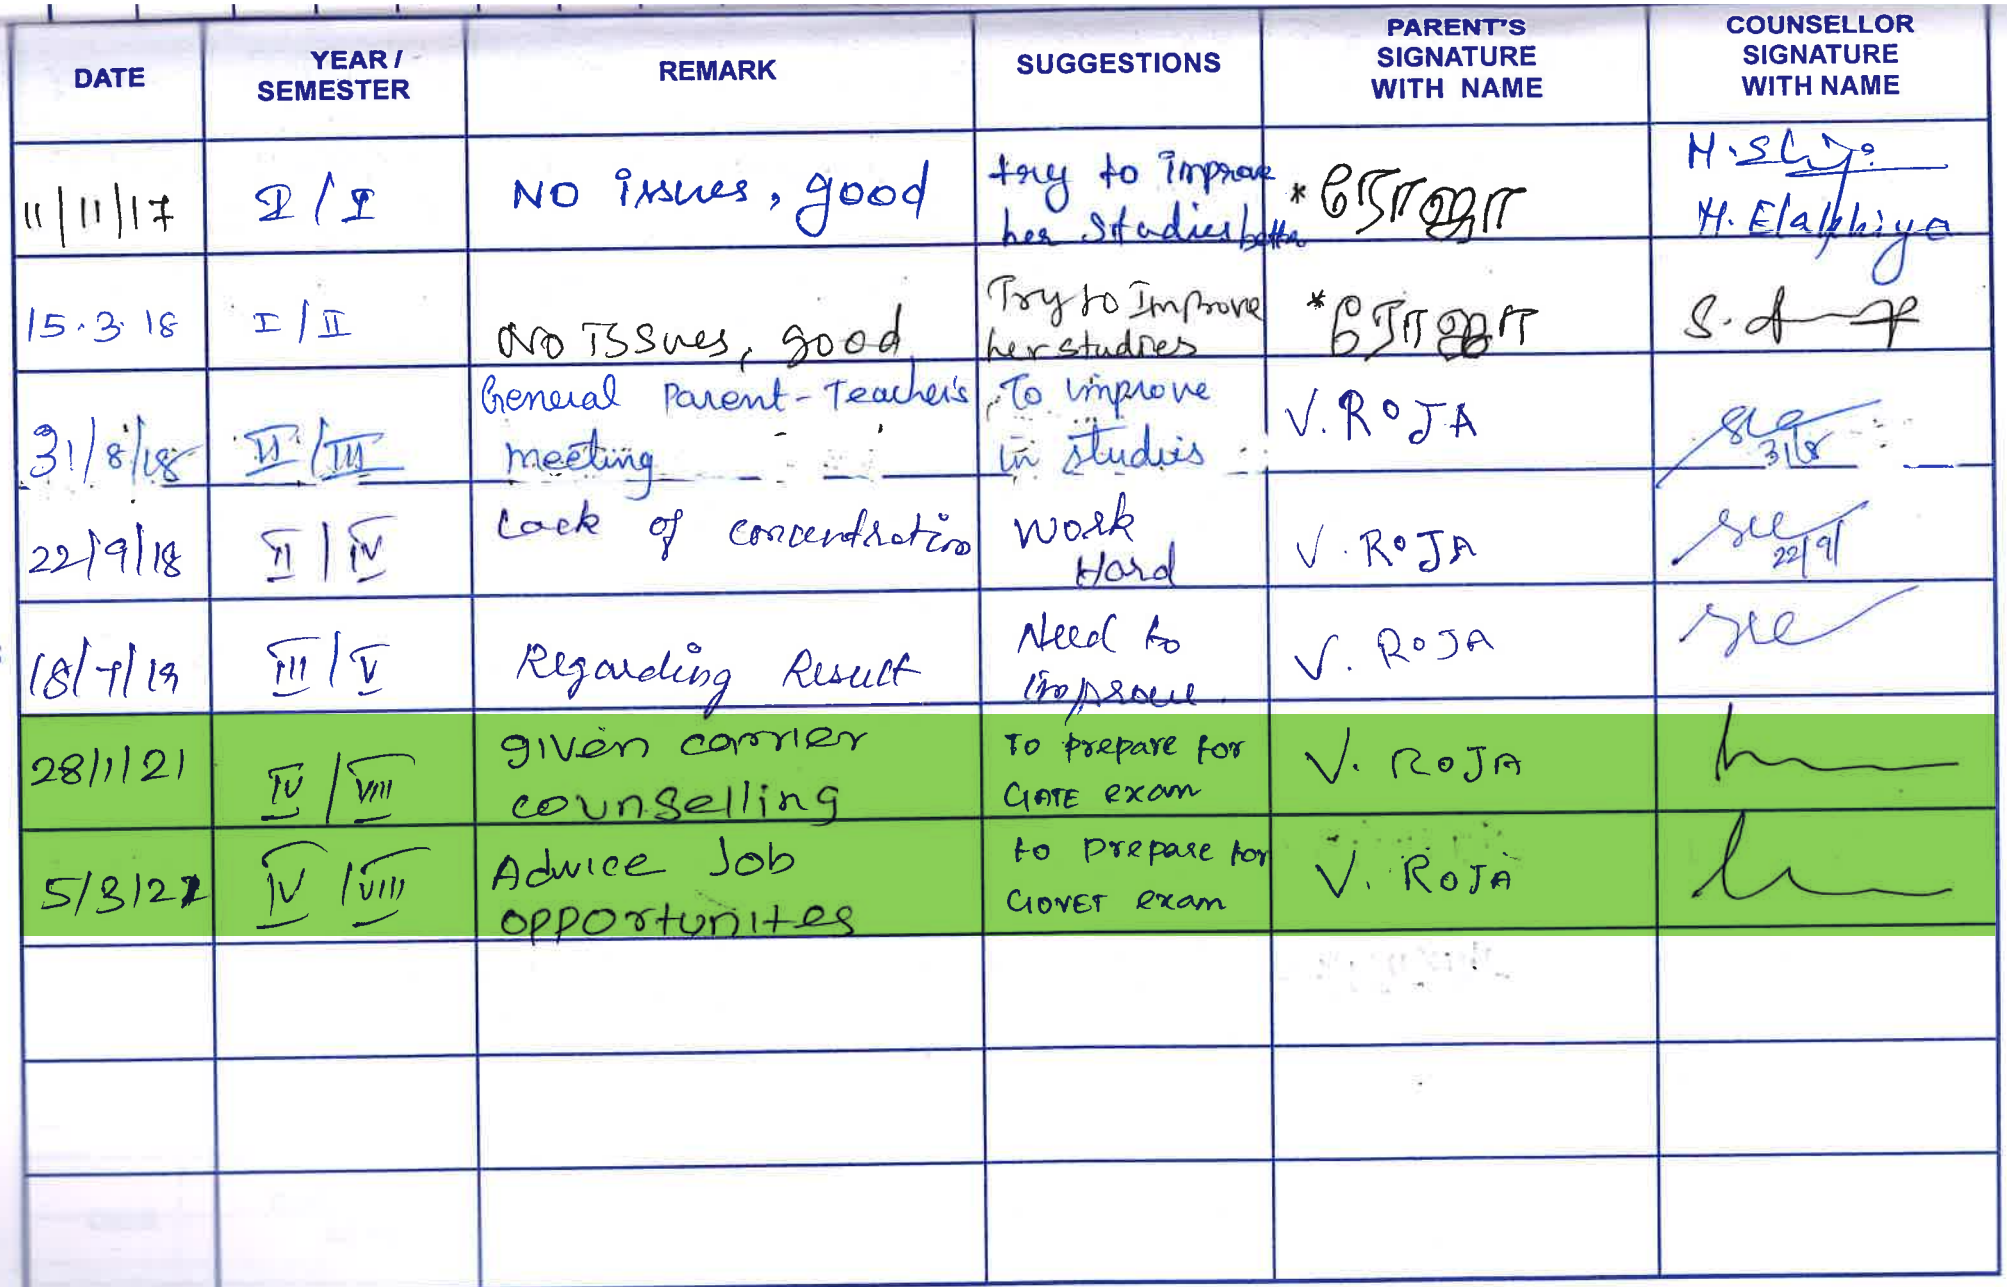 DATE
YEAR /
SEMESTER
REMARK
SUGGESTIONS
PARENT'S
SIGNATURE
WITH NAME
COUNSELLOR
SIGNATURE
WITH NAME
11/11/17
I / I
NO issues, good
try to improve
her studies better
* ரோஜா
H. Elakhiya
15.3.18
I / II
No Issues, good
Try to Improve
her studies
* ரோஜா
31/8/18
II / III
General Parent-Teacher's
meeting
To improve
in studies
V. ROJA
31/8
22/9/18
II / IV
Lack of concentration
Work
Hard
V. ROJA
22/9/
18/7/19
III / V
Regarding Result
Need to
improve
V. ROJA
28/1/21
IV / VIII
given carrier
counselling
To prepare for
GATE exam
V. ROJA
5/3/21
IV / VIII
Advice Job
opportunites
to prepare for
GOVET exam
V. ROJA